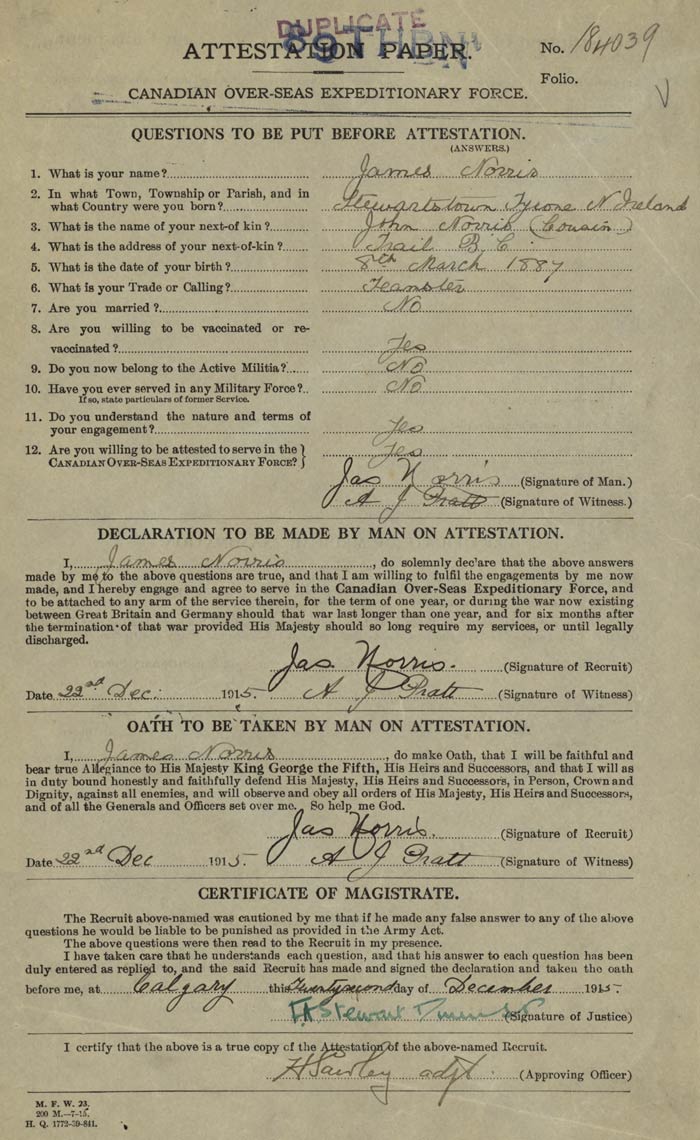 DUPLICATE
89TH BN
ATTESTATION PAPER.
No. 184039
Folio.
CANADIAN OVER-SEAS EXPEDITIONARY FORCE.
QUESTIONS TO BE PUT BEFORE ATTESTATION.
(ANSWERS.)
1. What is your name? James Norris
2. In what Town, Township or Parish, and in
what Country were you born? Stewartstown Tyrone N Ireland
3. What is the name of your next-of kin? John Norris (Cousin)
4. What is the address of your next-of-kin? Trail B.C.
5. What is the date of your birth? 8th March 1887
6. What is your Trade or Calling? Teamster
7. Are you married? No
8. Are you willing to be vaccinated or re-
vaccinated? Yes
9. Do you now belong to the Active Militia? No
10. Have you ever served in any Military Force? No
If so, state particulars of former Service.
11. Do you understand the nature and terms of
your engagement? Yes
12. Are you willing to be attested to serve in the
CANADIAN OVER-SEAS EXPEDITIONARY FORCE? } Yes
Jas Norris (Signature of Man.)
A J Pratt (Signature of Witness.)
DECLARATION TO BE MADE BY MAN ON ATTESTATION.
I, James Norris, do solemnly declare that the above answers
made by me to the above questions are true, and that I am willing to fulfil the engagements by me now
made, and I hereby engage and agree to serve in the Canadian Over-Seas Expeditionary Force, and
to be attached to any arm of the service therein, for the term of one year, or during the war now existing
between Great Britain and Germany should that war last longer than one year, and for six months after
the termination of that war provided His Majesty should so long require my services, or until legally
discharged.
Jas Norris. (Signature of Recruit)
Date 22nd Dec. 1915. A J Pratt (Signature of Witness)
OATH TO BE TAKEN BY MAN ON ATTESTATION.
I, James Norris, do make Oath, that I will be faithful and
bear true Allegiance to His Majesty King George the Fifth, His Heirs and Successors, and that I will as
in duty bound honestly and faithfully defend His Majesty, His Heirs and Successors, in Person, Crown and
Dignity, against all enemies, and will observe and obey all orders of His Majesty, His Heirs and Successors,
and of all the Generals and Officers set over me. So help me God.
Jas Norris. (Signature of Recruit)
Date 22nd Dec 1915. A J Pratt (Signature of Witness)
CERTIFICATE OF MAGISTRATE.
The Recruit above-named was cautioned by me that if he made any false answer to any of the above
questions he would be liable to be punished as provided in the Army Act.
The above questions were then read to the Recruit in my presence.
I have taken care that he understands each question, and that his answer to each question has been
duly entered as replied to, and the said Recruit has made and signed the declaration and taken the oath
before me, at Calgary this Twenty second day of December 1915.
Stewart (Signature of Justice)
I certify that the above is a true copy of the Attestation of the above-named Recruit.
adjt. (Approving Officer)
M. F. W. 23.
200 M.—7-15.
H. Q. 1772-39-841.